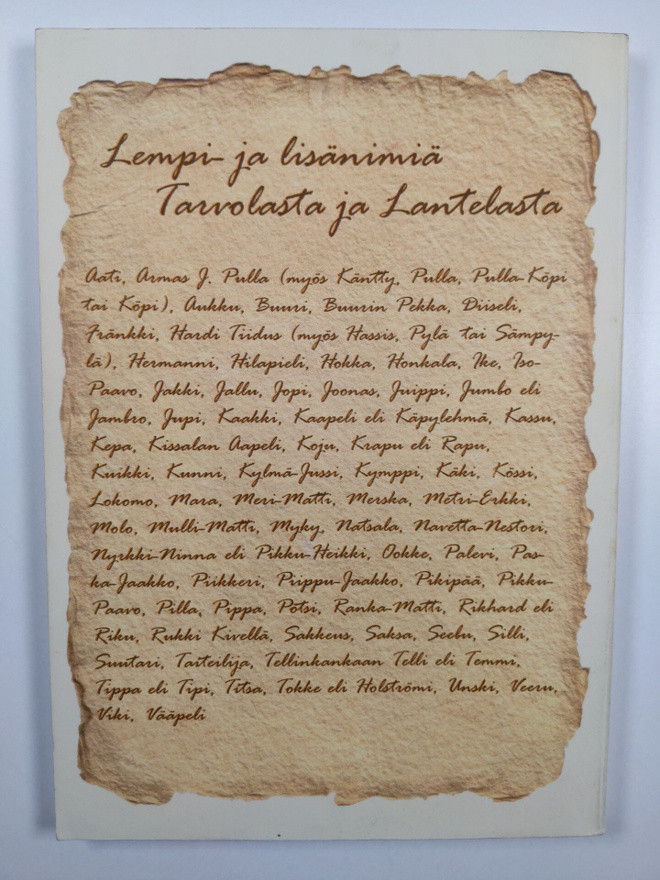 Lempi- ja lisänimiä
Tarvolasta ja Lantelasta
Aati, Armas J. Pulla (myös Käntty, Pulla, Pulla-Köpi
tai Köpi), Aukku, Buuri, Buurin Pekka, Diiseli,
Fränkki, Hardi Tiidus (myös Hassis, Pylä tai Sämpy-
lä), Hermanni, Hilapieli, Hokka, Honkala, Ike, Iso-
Paavo, Jakki, Jallu, Jopi, Joonas, Juippi, Jumbo eli
Jambro, Jupi, Kaakki, Kaapeli eli Käpylehmä, Kassu,
Kepa, Kissalan Aapeli, Koju, Krapu eli Rapu,
Kuikki, Kunni, Kylmä-Jussi, Kymppi, Käki, Kössi,
Lokomo, Mara, Meri-Matti, Merska, Metri-Erkki,
Molo, Mulli-Matti, Myky, Natsala, Navetta-Nestori,
Nyrkki-Ninna eli Pikku-Heikki, Ookke, Palevi, Pas-
ka-Jaakko, Piikkeri, Piippu-Jaakko, Pikipää, Pikku-
Paavo, Pilla, Pippa, Potsi, Ranka-Matti, Rikhard eli
Riku, Rukki Kivellä, Sakkeus, Saksa, Seebu, Silli,
Suutari, Taiteilija, Tellinkankaan Telli eli Temmi,
Tippa eli Tipi, Titsa, Tokke eli Holströmi, Unski, Veeru,
Viki, Vääpeli